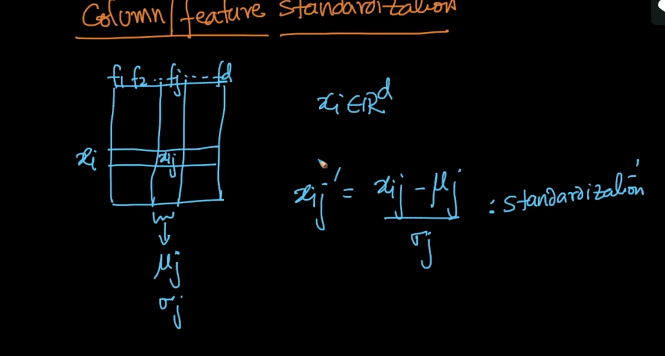 Column/feature Standardization
f₁ f₂ .. fj .... fd
xi ∈ ℝᵈ
xi xij
xij' = xij - μj / σj : Standardization
μj
σj